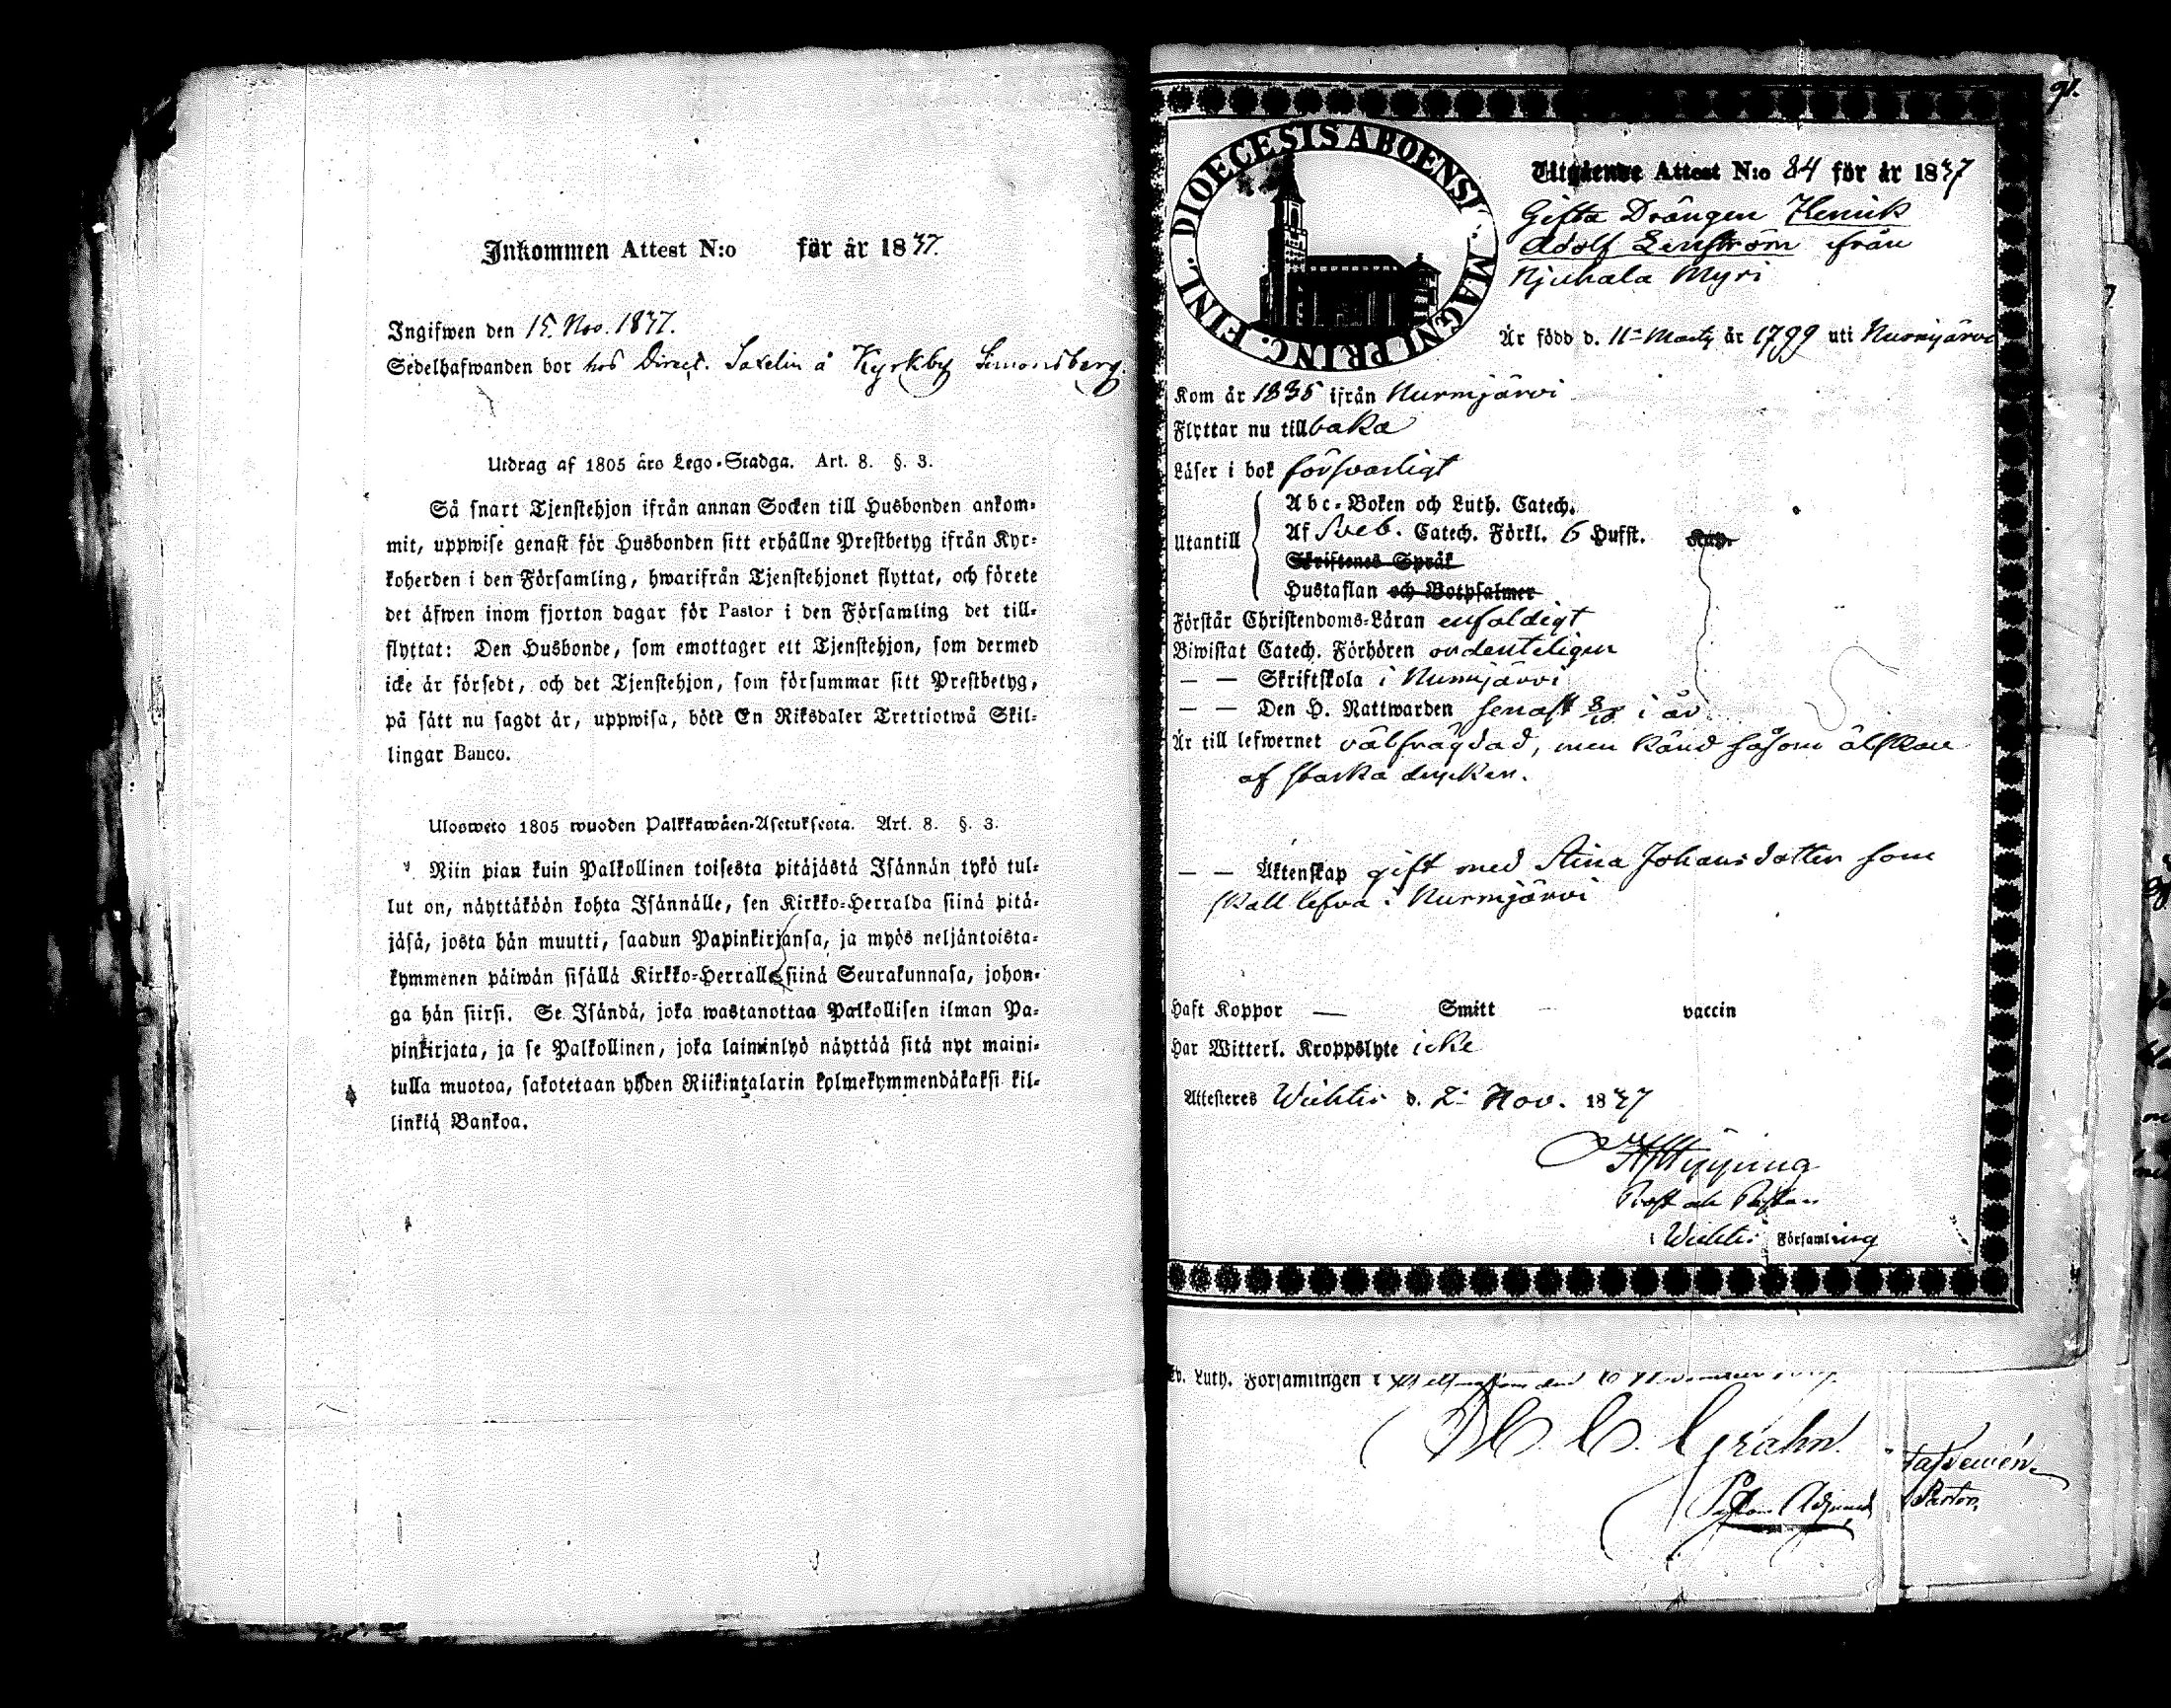 Inkommen Attest N:o för år 1837.
Ingifwen den 15. Nov. 1837.
Sedelhafwanden bor hos Direct. Saxelin å Kyrkby Simonsberg.
Utdrag af 1805 års Lego-Stadga. Art. 8. §. 3.
Så snart Tjenstehjon ifrån annan Socken till Husbonden ankom-
mit, uppwise genast för Husbonden sitt erhållne Prestbetyg ifrån Kyr-
koherden i den Församling, hwarifrån Tjenstehjonet flyttat, och förete
det äfwen inom fjorton dagar för Pastor i den Församling det till-
flyttat: Den Husbonde, som emottager ett Tjenstehjon, som dermed
icke är försedt, och det Tjenstehjon, som försummar sitt Prestbetyg,
på sätt nu sagdt är, uppwisa, böte En Riksdaler Trettiotwå Skil-
lingar Banco.
Ulosweto 1805 wuoden Palkkawäen-Asetuksesta. Art. 8. §. 3.
Niin pian kuin Palkollinen toisesta pitäjästä Isännän tykö tul-
lut on, näyttäköön kohta Isännälle, sen Kirkko-Herralda siinä pitä-
jäsä, josta hän muutti, saadun Papinkirjansa, ja myös neljäntoista-
kymmenen päiwän sisällä Kirkko-Herralle siinä Seurakunnasa, johon-
ga hän siirsi. Se Isändä, joka wastanottaa Palkollisen ilman Pa-
pinkirjata, ja se Palkollinen, joka laiminlyö näyttää sitä nyt maini-
tulla muotoa, sakotetaan yhden Riikintalarin kolmekymmendäkaksi kil-
linkiä Bankoa.
91.
DIOECESIS ABOENSI. MAGNI PRINC. FINL.
Utgående Attest N:o 84 för år 1837
Gifta Drängen Henrik
Adolf Lenström från
Njuhala Myri
Är född d. 11 Martij år 1799 uti Nurmijärvi
Kom år 1835 ifrån Nurmijärvi
Flyttar nu tillbaka
Läser i bok försvarligt
Abc-Boken och Luth. Catech.
Utantill Af Sveb. Catech. Förkl. 6 Hufst.
Skriftenes Språk
Hustaflan och Botpsalmer
Förstår Christendoms-Läran enfaldigt
Biwistat Catech. Förhören ordenteligen
— — Skriftskola i Nurmijärvi
— — Den H. Nattwarden senast 8/10 i år
Är till lefwernet välfrägdad, men känd såsom älskare
af starka drycker.
— — Äktenskap gift med Stina Johansdotter som
skall lefva i Nurmijärvi
Haft Koppor — Smitt vaccin
Har Witterl. Kroppslyte icke
Attesteres Wichtis d. 2 Nov. 1837
Hipping
Prost och Pastor
i Wichtis Församling
Ev. Luth. Församlingen i
Grahn.
Pastors Adjunct
Pastor.